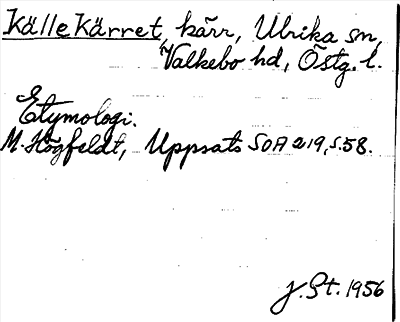 Källekärret, kärr, Ulrika sn,
Valkebo hd, Östg. l.
Etymologi.
M. Högfeldt, Uppsats SOA 219, s. 58.
J. St. 1956